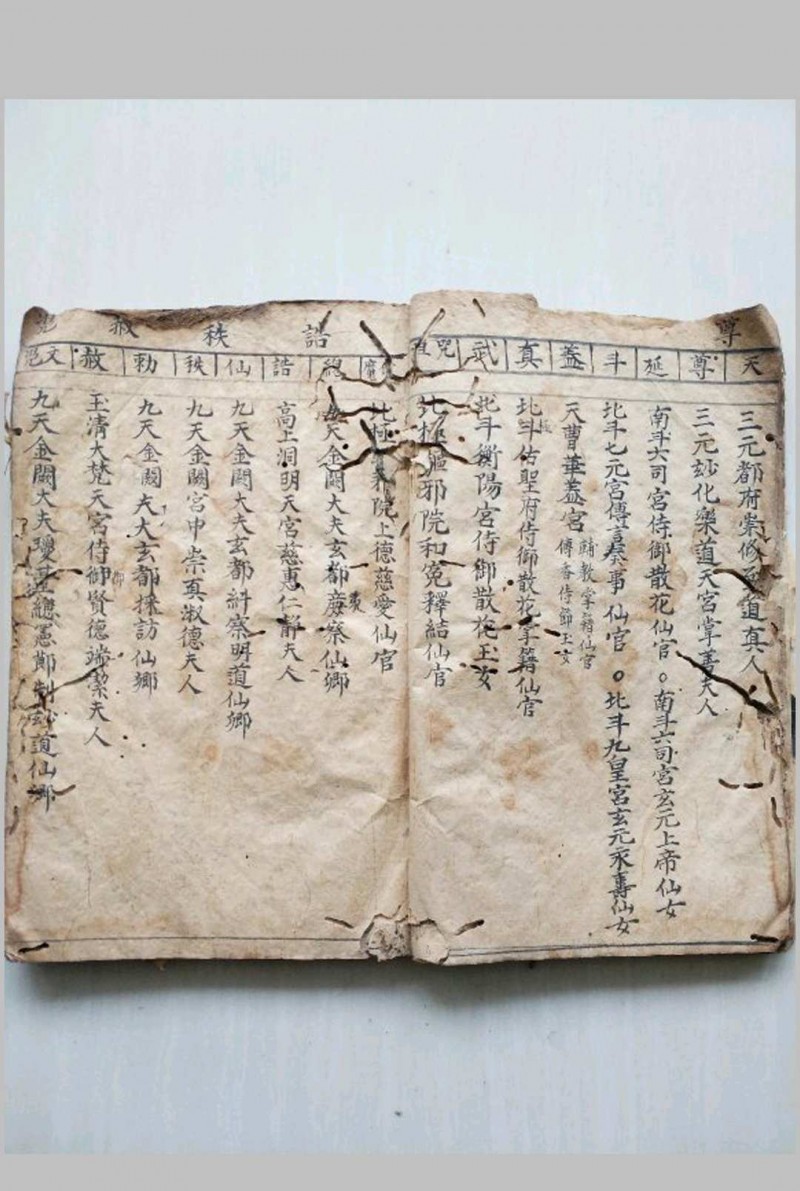 尊
天
尊
延
斗
蓋
真
武
咒
三元都府崇修至道真人
三元玅化樂道天宮掌善夫人
南斗六司宮侍御散花仙官。南斗六司宮玄元上帝仙女
北斗七元宮傳言奏事仙官。北斗九皇宮玄元永壽仙女
天曹華蓋宮
輔教掌籍仙官
傳香侍節玉女
北斗佑聖府侍御散花掌籍仙官
北斗衡陽宮侍御散花玉女
北極驅邪院和冤釋結仙官
誥
秩
赦
魔
總
誥
仙
秩
勅
赦
文
北極邪院上德慈愛仙官
九天金闕大夫玄都廉察仙卿
高上洞明天宮慈惠仁靜夫人
九天金闕大夫玄都糾察明道仙卿
九天金闕宮中崇真淑德夫人
九天金闕夫大玄都採訪仙卿
玉清大梵天宮侍御賢德端潔夫人
九天金闕大夫瓊臺總憲節制玅道仙卿